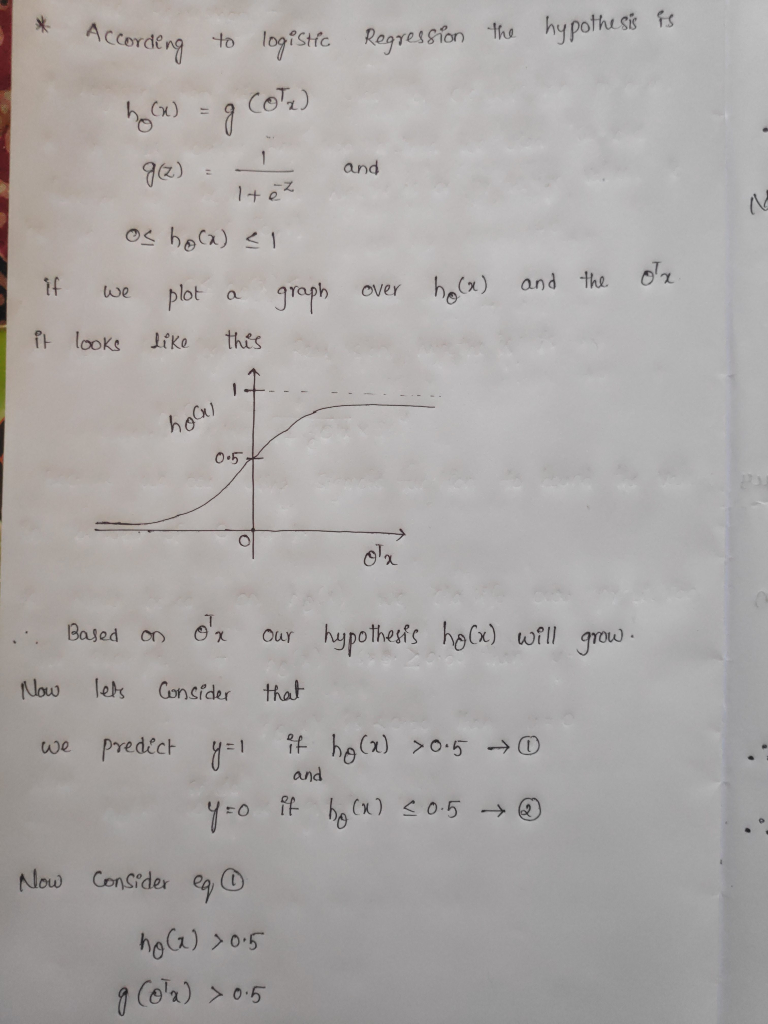 * According to logistic Regression the hypothesis is
hθ(x) = g(θᵀx)
g(z) = 1 / (1 + e⁻ᶻ) and
0 ≤ hθ(x) ≤ 1
if we plot a graph over hθ(x) and the θᵀx
it looks like this
1
hθ(x)
0.5
0
θᵀx
∴ Based on θᵀx our hypothesis hθ(x) will grow.
Now lets Consider that
we predict y=1 if hθ(x) >0.5 → ①
and
y=0 if hθ(x) ≤ 0.5 → ②
Now Consider eq ①
hθ(x) >0.5
g(θᵀx) > 0.5